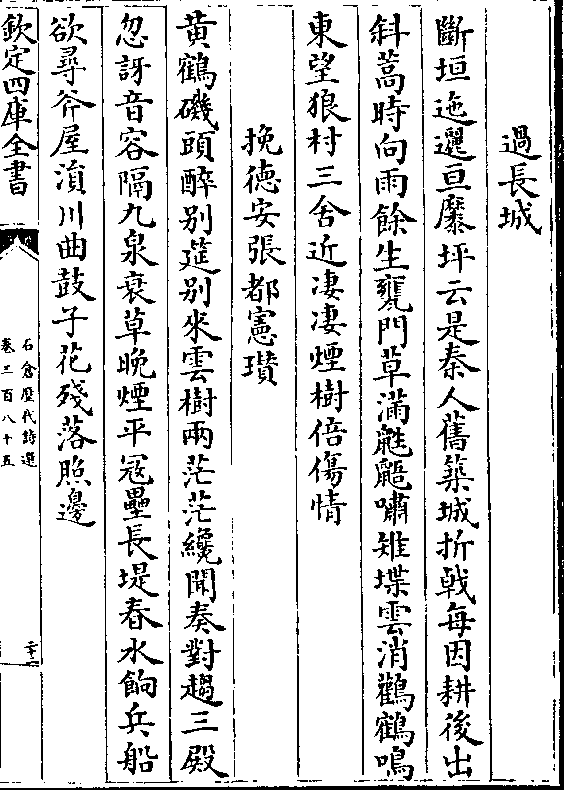 過長城
斷垣迤邐亘麋坪云是秦人舊築城折戟每因耕後出
斜蒿時向雨餘生甕門草滿鼪鼯嘯雉堞雲消鸛鶴鳴
東望狼村三舍近凄凄煙樹倍傷情
挽德安張都憲瓚
黄鶴磯頭醉别筵别來雲樹兩茫茫纔聞奏對趨三殿
忽訝音容隔九泉衰草晚煙平冦壘長堤春水餉兵船
欲尋斧屋溳川曲鼓子花殘落照邊
欽定四庫全書
石倉歴代詩選
卷三百八十五